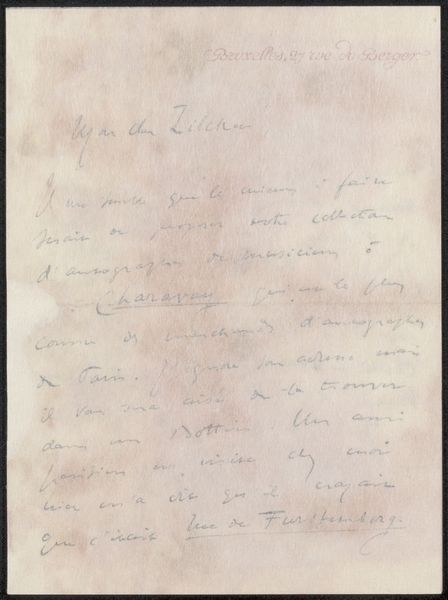 Bruxelles, 27 rue du Berger
Mon cher Zilcken,
Il me semble que le mieux à faire
serait de proposer votre collection
d'autographes de musiciens à
Charavay qui est le plus
connu des marchands d'autographes
de Paris. J'ignore son adresse mais
il vous sera aisé de la trouver
dans un Bottin. Un ami
parisien en visite chez moi
hier m'a dit qu'il croyait
que c'était rue de Furstemberg.